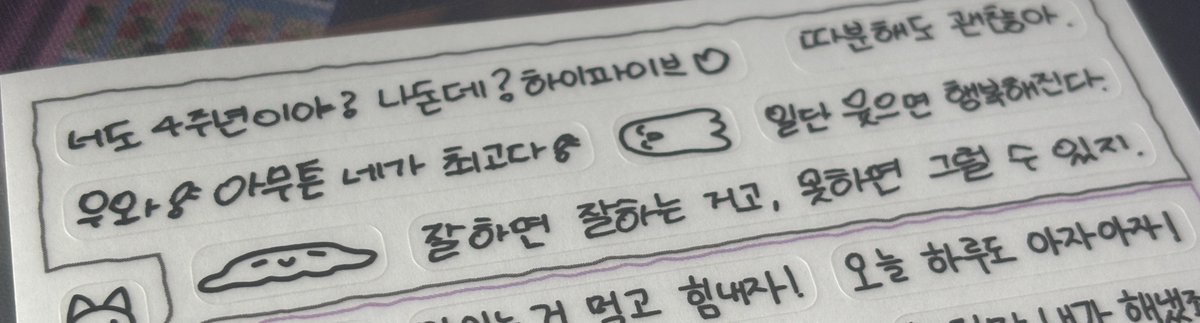 너도 4주년이야? 나돈데? 하이파이브♡
따분해도 괜찮아.
우와♪ 아무튼 네가 최고다♪
일단 웃으면 행복해진다.
잘하면 잘하는 거고, 못하면 그럴 수 있지.
거 먹고 힘내자!
오늘 하루도 아자아자!
내가 해냈